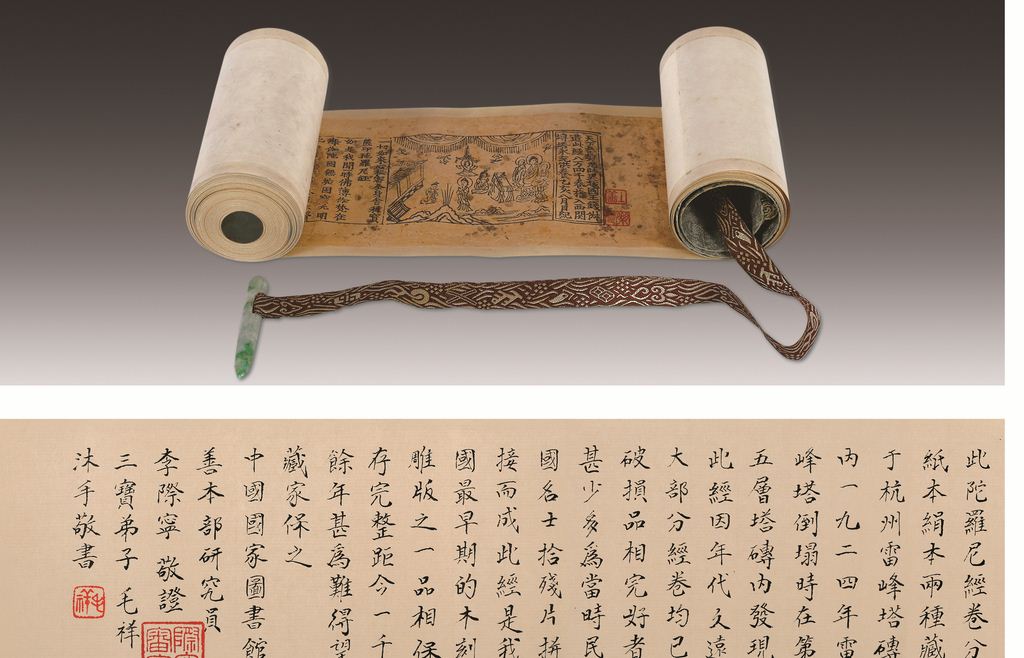 造此經八万四千卷捨入西關
一切如來心祕密全身舍利寶
篋印陀羅尼經
此陀羅尼經卷分
紙本絹本兩種藏
于杭州雷峰塔磚
內一九二四年雷
峰塔倒塌時在第
五層塔磚內發現
此經因年代久遠
大部分經卷均已
破損品相完好者
甚少多為當時民
國名士拾殘片拼
接而成此經是我
國最早期的木刻
雕版之一品相保
存完整距今一千
餘年甚為難得望
藏家保之
中國國家圖書館
善本部研究員
李際寧 敬證
三寶弟子 毛祥
沐手敬書